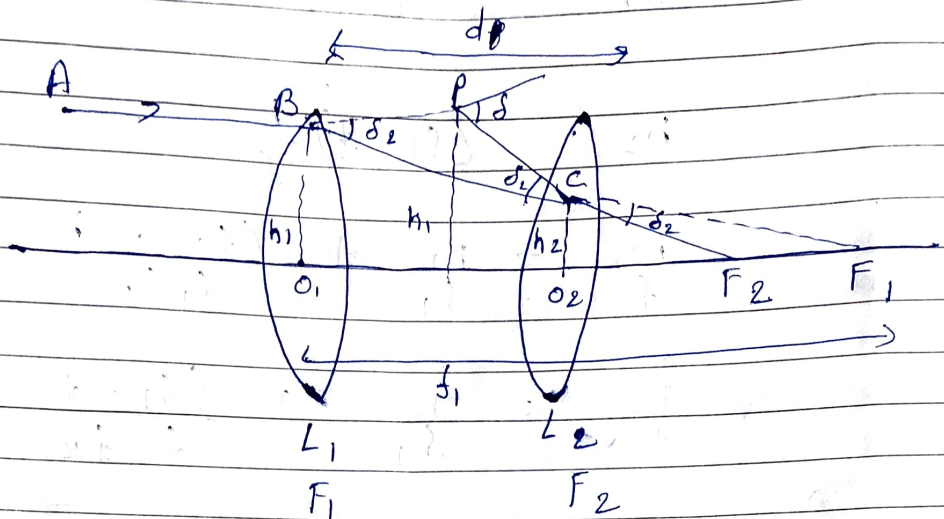 d
A B P δ
δ2
δ2 C
h1 h1 h2 δ2
O1 O2 F2 F1
f1
L1 L2
F1 F2